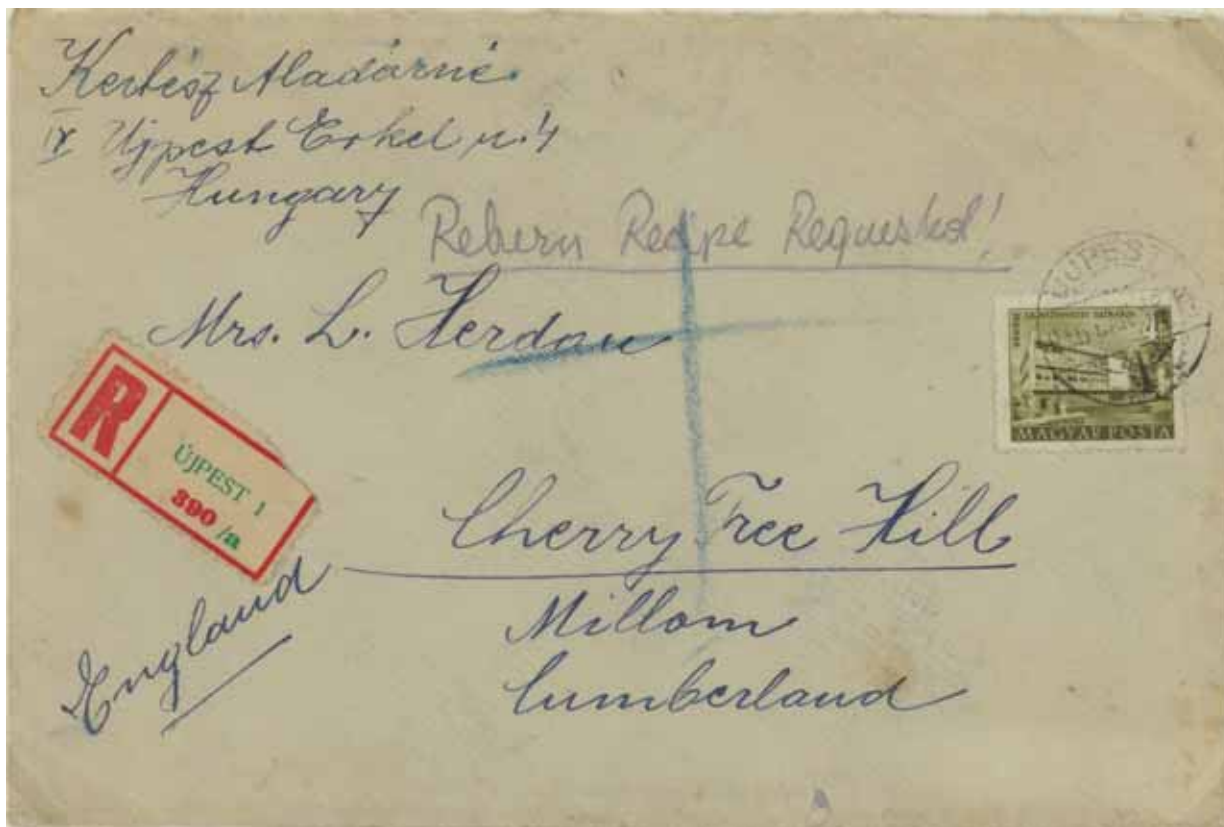 Kertész Aladárné.
IV Ujpest Erkel u. 4
Hungary
Return Recipe Requested!
Mrs. L. Herdan
R
ÚJPEST 1
390/a
MAGYAR POSTA
Cherry Tree Hill
Millom
Cumberland
England